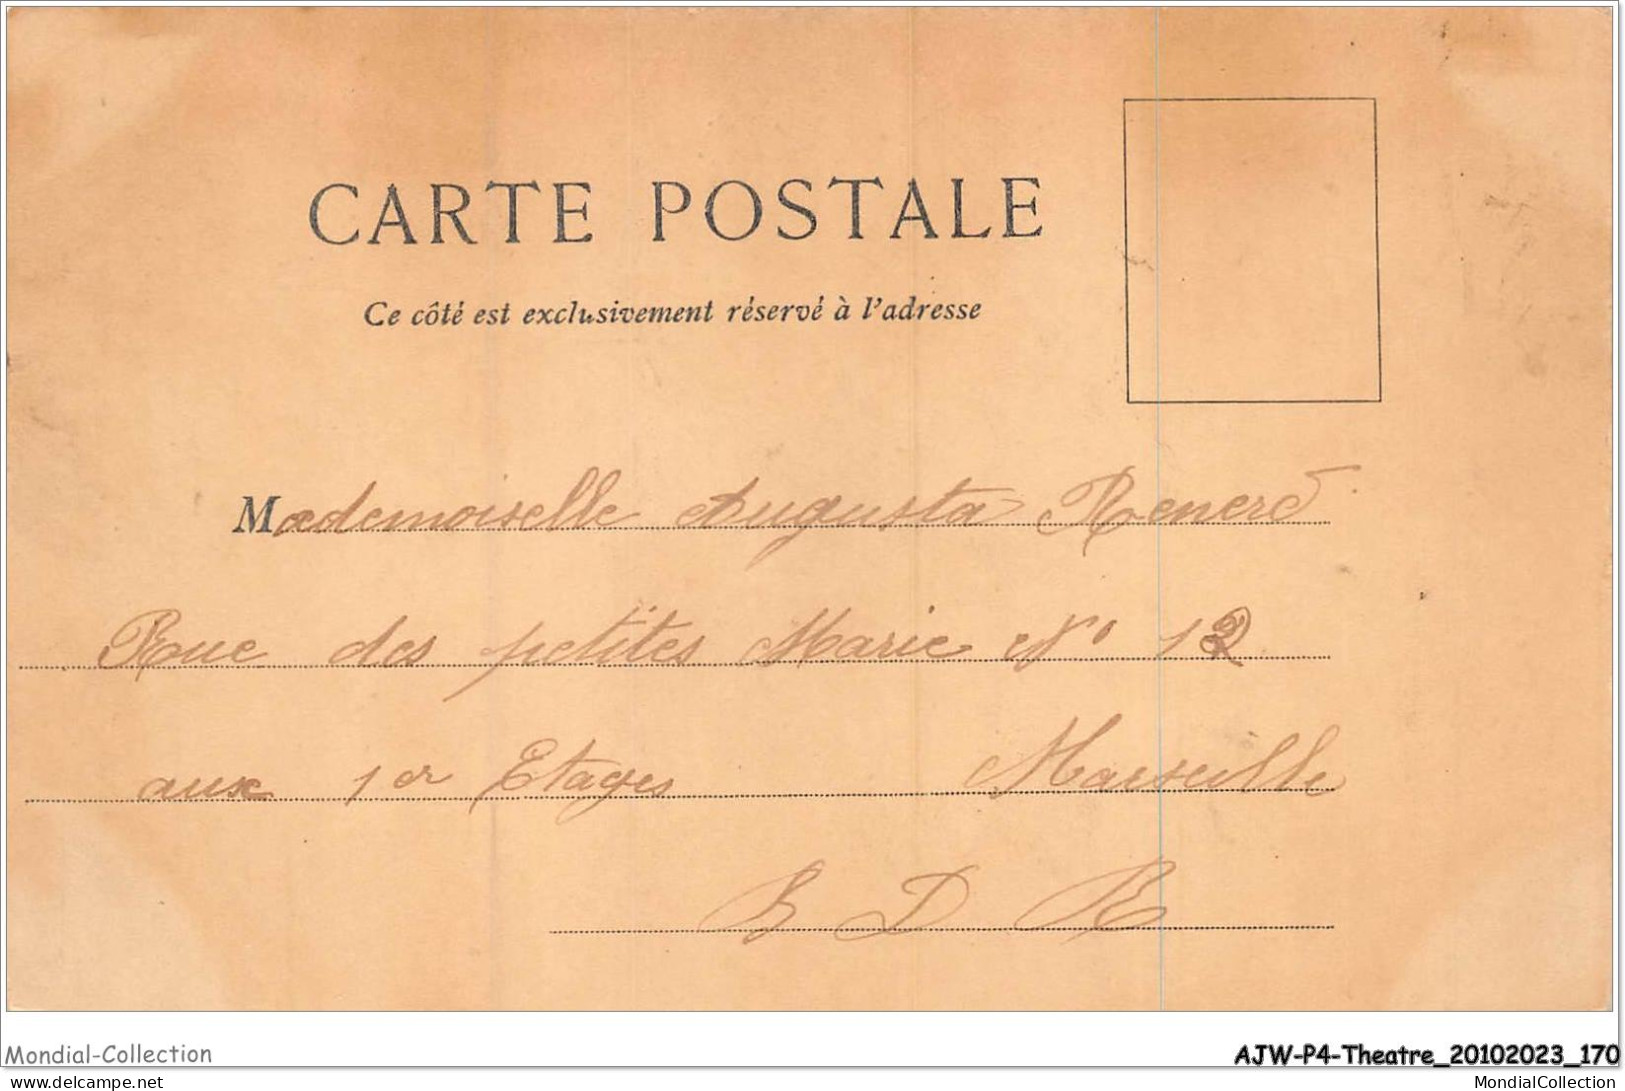 CARTE POSTALE
Ce côté est exclusivement réservé à l'adresse
Mademoiselle Augusta Reneré
Rue des petites Marie N° 12
aux 1er Etages Marseille
B D R
Mondial-Collection
AJW-P4-Theatre_20102023_170
www.delcampe.net
MondialCollection